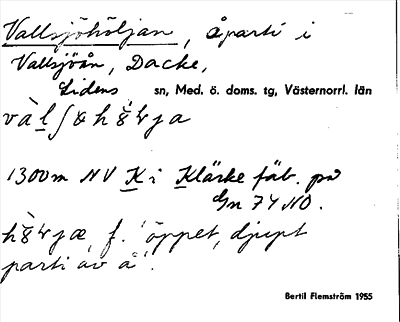 Vallsjöhöljan, åparti i
Vallsjöån, Dacke,
Lidens sn, Med. ö. doms. tg, Västernorrl. län
1300 m NV K i Klärke fäb. på
Gn 74 NO.
f. "öppet, djupt
parti av å".
Bertil Flemström 1955